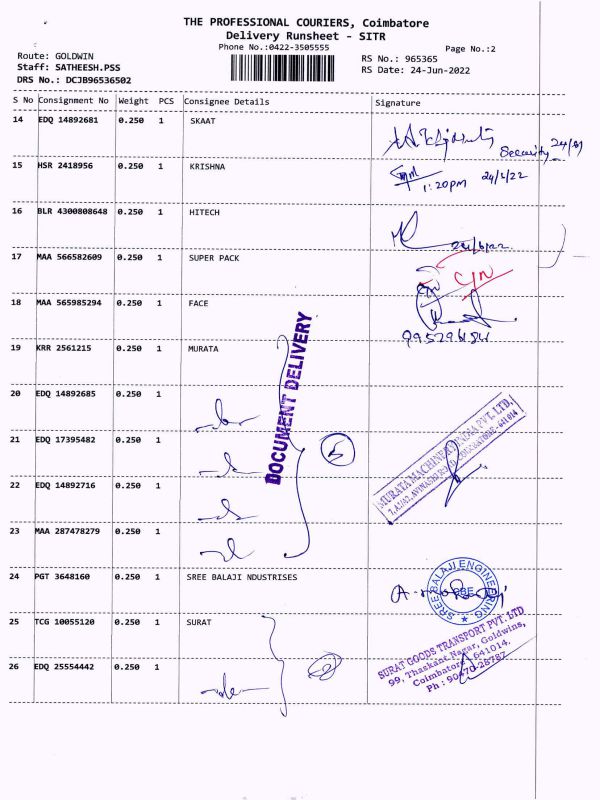 THE PROFESSIONAL COURIERS, Coimbatore
Delivery Runsheet - SITR
Phone No.:0422-3505555
Page No.:2
Route: GOLDWIN
Staff: SATHEESH.PSS
DRS No.: DCJB96536502
RS No.: 965365
RS Date: 24-Jun-2022
S No Consignment No Weight PCS Consignee Details Signature
14 EDQ 14892681 0.250 1 SKAAT
Security
15 HSR 2418956 0.250 1 KRISHNA
1:20PM
16 BLR 4300808648 0.250 1 HITECH
17 MAA 566582609 0.250 1 SUPER PACK
C/N
18 MAA 565985294 0.250 1 FACE
19 KRR 2561215 0.250 1 MURATA
DOCUMENT DELIVERY
20 EDQ 14892685 0.250 1
21 EDQ 17395482 0.250 1
5
MURATA MACHINERY INDIA PVT. LTD,
22 EDQ 14892716 0.250 1
23 MAA 287478279 0.250 1
24 PGT 3648160 0.250 1 SREE BALAJI NDUSTRISES
SREE BALAJI ENGINEERING
SBE
25 TCG 10055120 0.250 1 SURAT
SURAT GOODS TRANSPORT PVT. LTD
99, Thaskant Nagar, Goldwins,
Coimbatore - 641014.
Ph : 90470-28787
26 EDQ 25554442 0.250 1